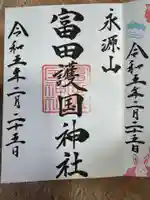 令和五年二月二十五日
永源山
富田護国神社
令和五年二月二十五日